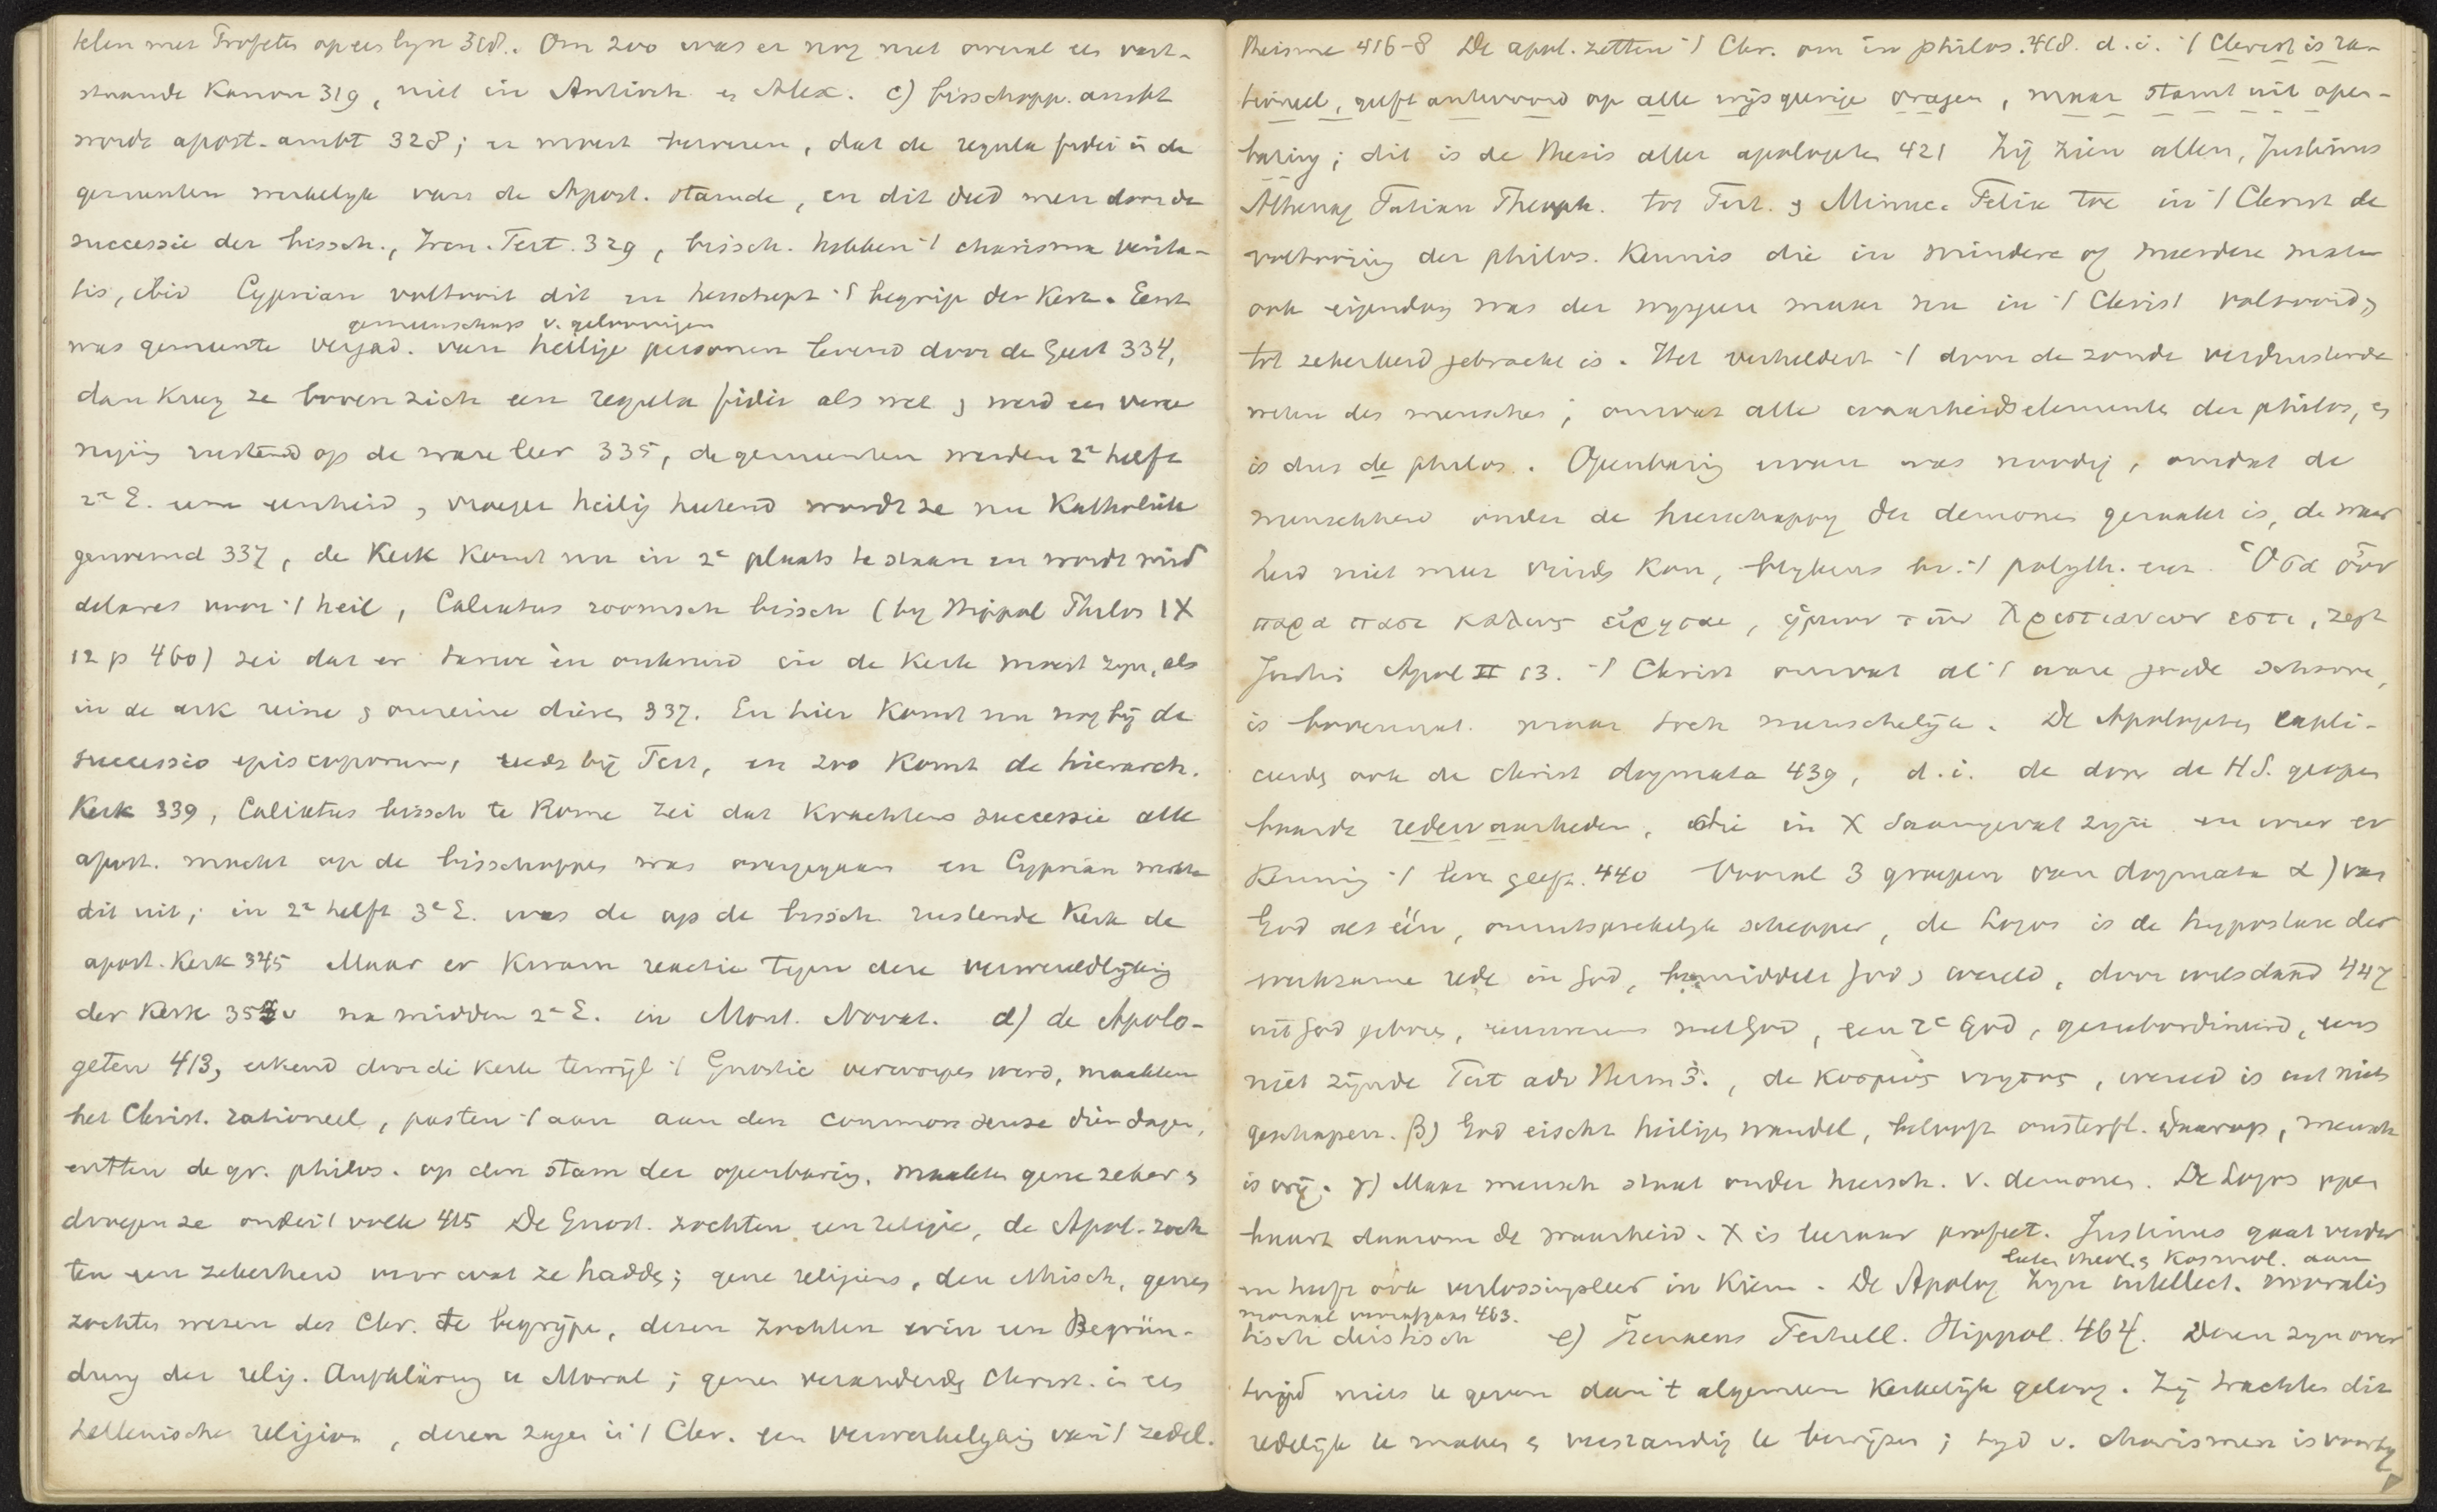 telen met Profeten op een lyn 318. Om 200 was er nog niet overal een vast-
staande Kanon 319, niet in Antioch. en Alex. c) bisschopp. ambt
wordt apost. ambt 328; er moest bewezen, dat de regula fidei in de
gemeenten werkelyk van de Apost. stamde, en dit deed men door de
successie der bissch., Iren. Tert. 329, bissch. hebben 't charisma verita-
tis, ibid Cyprian voltooit dit en herschept 't begrip der Kerk. Eerst
gemeenschap v. geloovigen
was gemeente vergad. van heilige personen levend door de Geest 334,
dan kreeg ze boven zich een regula fidei als wet, werd een vere
niging rustend op de ware leer 335, de gemeenten werden 2e helft
2e E. een eenheid, vroeger heilig heetend wordt ze nu Katholiek
genoemd 337, de Kerk komt nu in 2e plaats te staan en wordt
voor 't heil, Calixtus roomsch bissch (by Hippol Philos IX
12 p 460) zei dat er tarwe én onkruid in de Kerk moest zyn, als
in de ark reine & onreine dieren 337. En hier komt nu nog bij de
successio episcoporum, reeds bij Tert, en zoo komt de hierarch.
Kerk 339, Calixtus bissch te Rome zei dat krachtens successie alle
apost. macht op de bisschoppen was overgegaan en Cyprian werkte
dit uit; in 2e helft 3e E. was de op de bissch. rustende Kerk de
apost. Kerk 345 Maar er kwam reactie tegen deze verwereldlijking
der Kerk na midden 2e E. in Mont. Novat. d) de Apolo-
geten 413, erkend door de kerk terwijl 't Gnostic verworpen werd, maakten
het Christ. rationeel, pasten 't aan aan den common sense dier dagen,
entten de gr. philos. op den stam der openbaring. maakten gene zeker &
droegen ze onder 't volk 415 De Gnost. zochten een religie, de Apol. zoch
ten een zekerheid voor wat ze hadden; gene religieus, deze ethisch, genen
zochten wezen des Chr. te begrijpen, dezen zochten erin een Begrün-
dung der relig. Aufklärung u Moral; genen veranderden Christ. in een
hellenische religion, dezen zagen in 't Chr. een verwerkelyking van 't zedel.
theisme 416-8 De apol. zetten 't Chr. om in philos. 418. d.i. 't Christ is ra-
tioneel, geeft antwoord op alle wijsgeerige vragen, maar stamt uit open-
baring; dit is de thesis aller apologeten 421 Zij zien allen, Justinus
Athenag Tatian Theoph. tot Tert. & Minuc. Felix toe in 't Christ de
voltooiing der philos. kennis die in mindere of meerdere mate
ook eigendom was der wysgeeren maar nu in 't Christ voltooid,
tot zekerheid gebracht is. Het verheldert 't door de zonde verduisterde
weten des menschen; omvat alle waarheidselementen der philos, en
is dus de philos. Openbaring was noodig, omdat de
menschheid onder de heerschappy der demonen geraakt is, de waar
heid niet meer vinden kon, blykens bv. 't polyth. enz. Ὅσα οὖν
παρα πασι καλως εἰρηται, ἡμων των Χριστιανων εστι, zegt
Justin Apol II 13. 't Christ omvat al 't ware goede schoone,
is bovennat. maar toch menschelijk. De Apologeten expli-
ceerden ook de christ dogmata 439, d.i. de door de H S. geopen
baarde redewaarheden, die in X saamgevat zijn en waar er
kennis 't leven geeft. 440 Vooral 3 groepen van dogmata α) van
God als één, onuitsprekelyk schepper, de Logos is de hypostase der
werkzame rede in God, bemiddelt God & wereld, door wilsdaad 447
uit God geboren, eenwezens met God, een 2e God, gesubordineerd, eens
niet zijnde Tert adv Herm 3., de κοσμος νοητος, wereld is uit niets
geschapen. β) God eischt heiligen wandel, belooft onsterfl. daarop, mensch
is vrij. γ) Maar mensch staat onder heersch. v. demonen. De Logos open
baart daarom de waarheid. X is leeraar profeet. Justinus gaat verder
en heeft ook verlossingsleer in kiem. De Apolog zyn intellect. moralis
laten theol. & kosmol. aan
moraal voorafgaan 463.
tisch deistisch e) Irenaeus Tertull. Hippol. 464. Dezen zyn over
tuigd niets te geven dan 't algemeen Kerkelijk geloof. Zij trachten dit
redelijk te maken & verstandig te bewijzen; tyd v. charismen is voorby